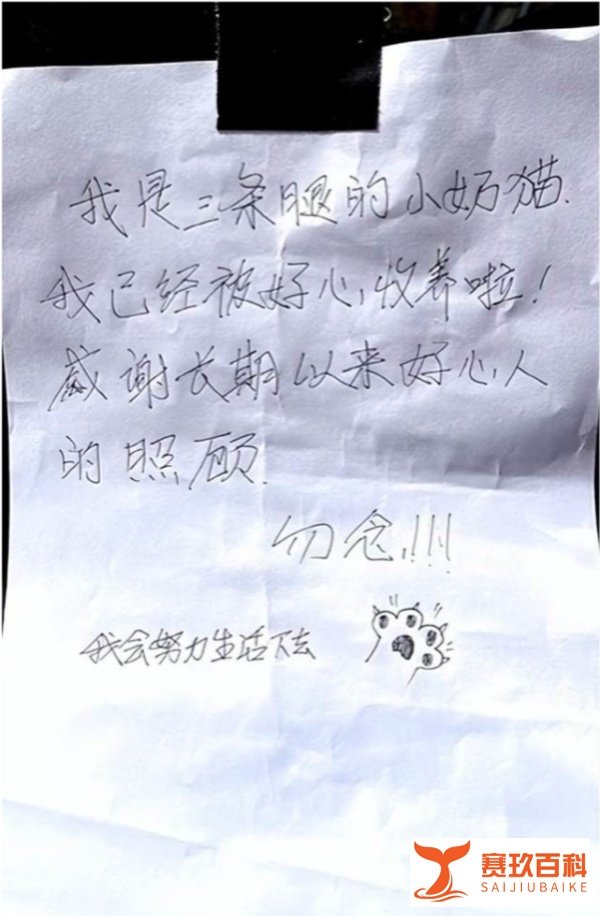 我是三条腿的小奶猫.
我已经被好心收养啦!
感谢长期以来好心人
的照顾.
勿念!!!
我会努力生活下去
赛玖百科
SAIJIUBAIKE